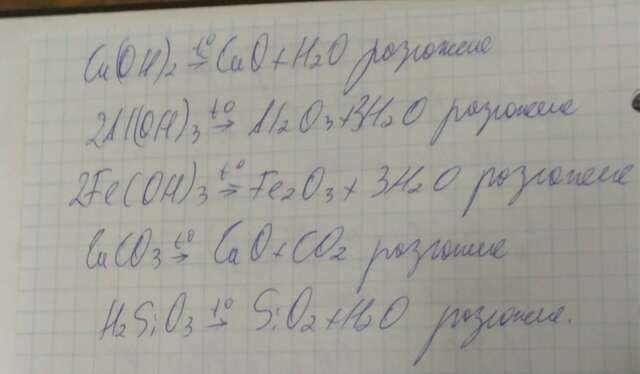 Cu(OH)2 t0→ CuO + H2O разложение
2Al(OH)3 t0→ Al2O3 + 3H2O разложение
2Fe(OH)3 t0→ Fe2O3 + 3H2O разложение
CaCO3 t0→ CaO + CO2 разложение
H2SiO3 t0→ SiO2 + H2O разложение.